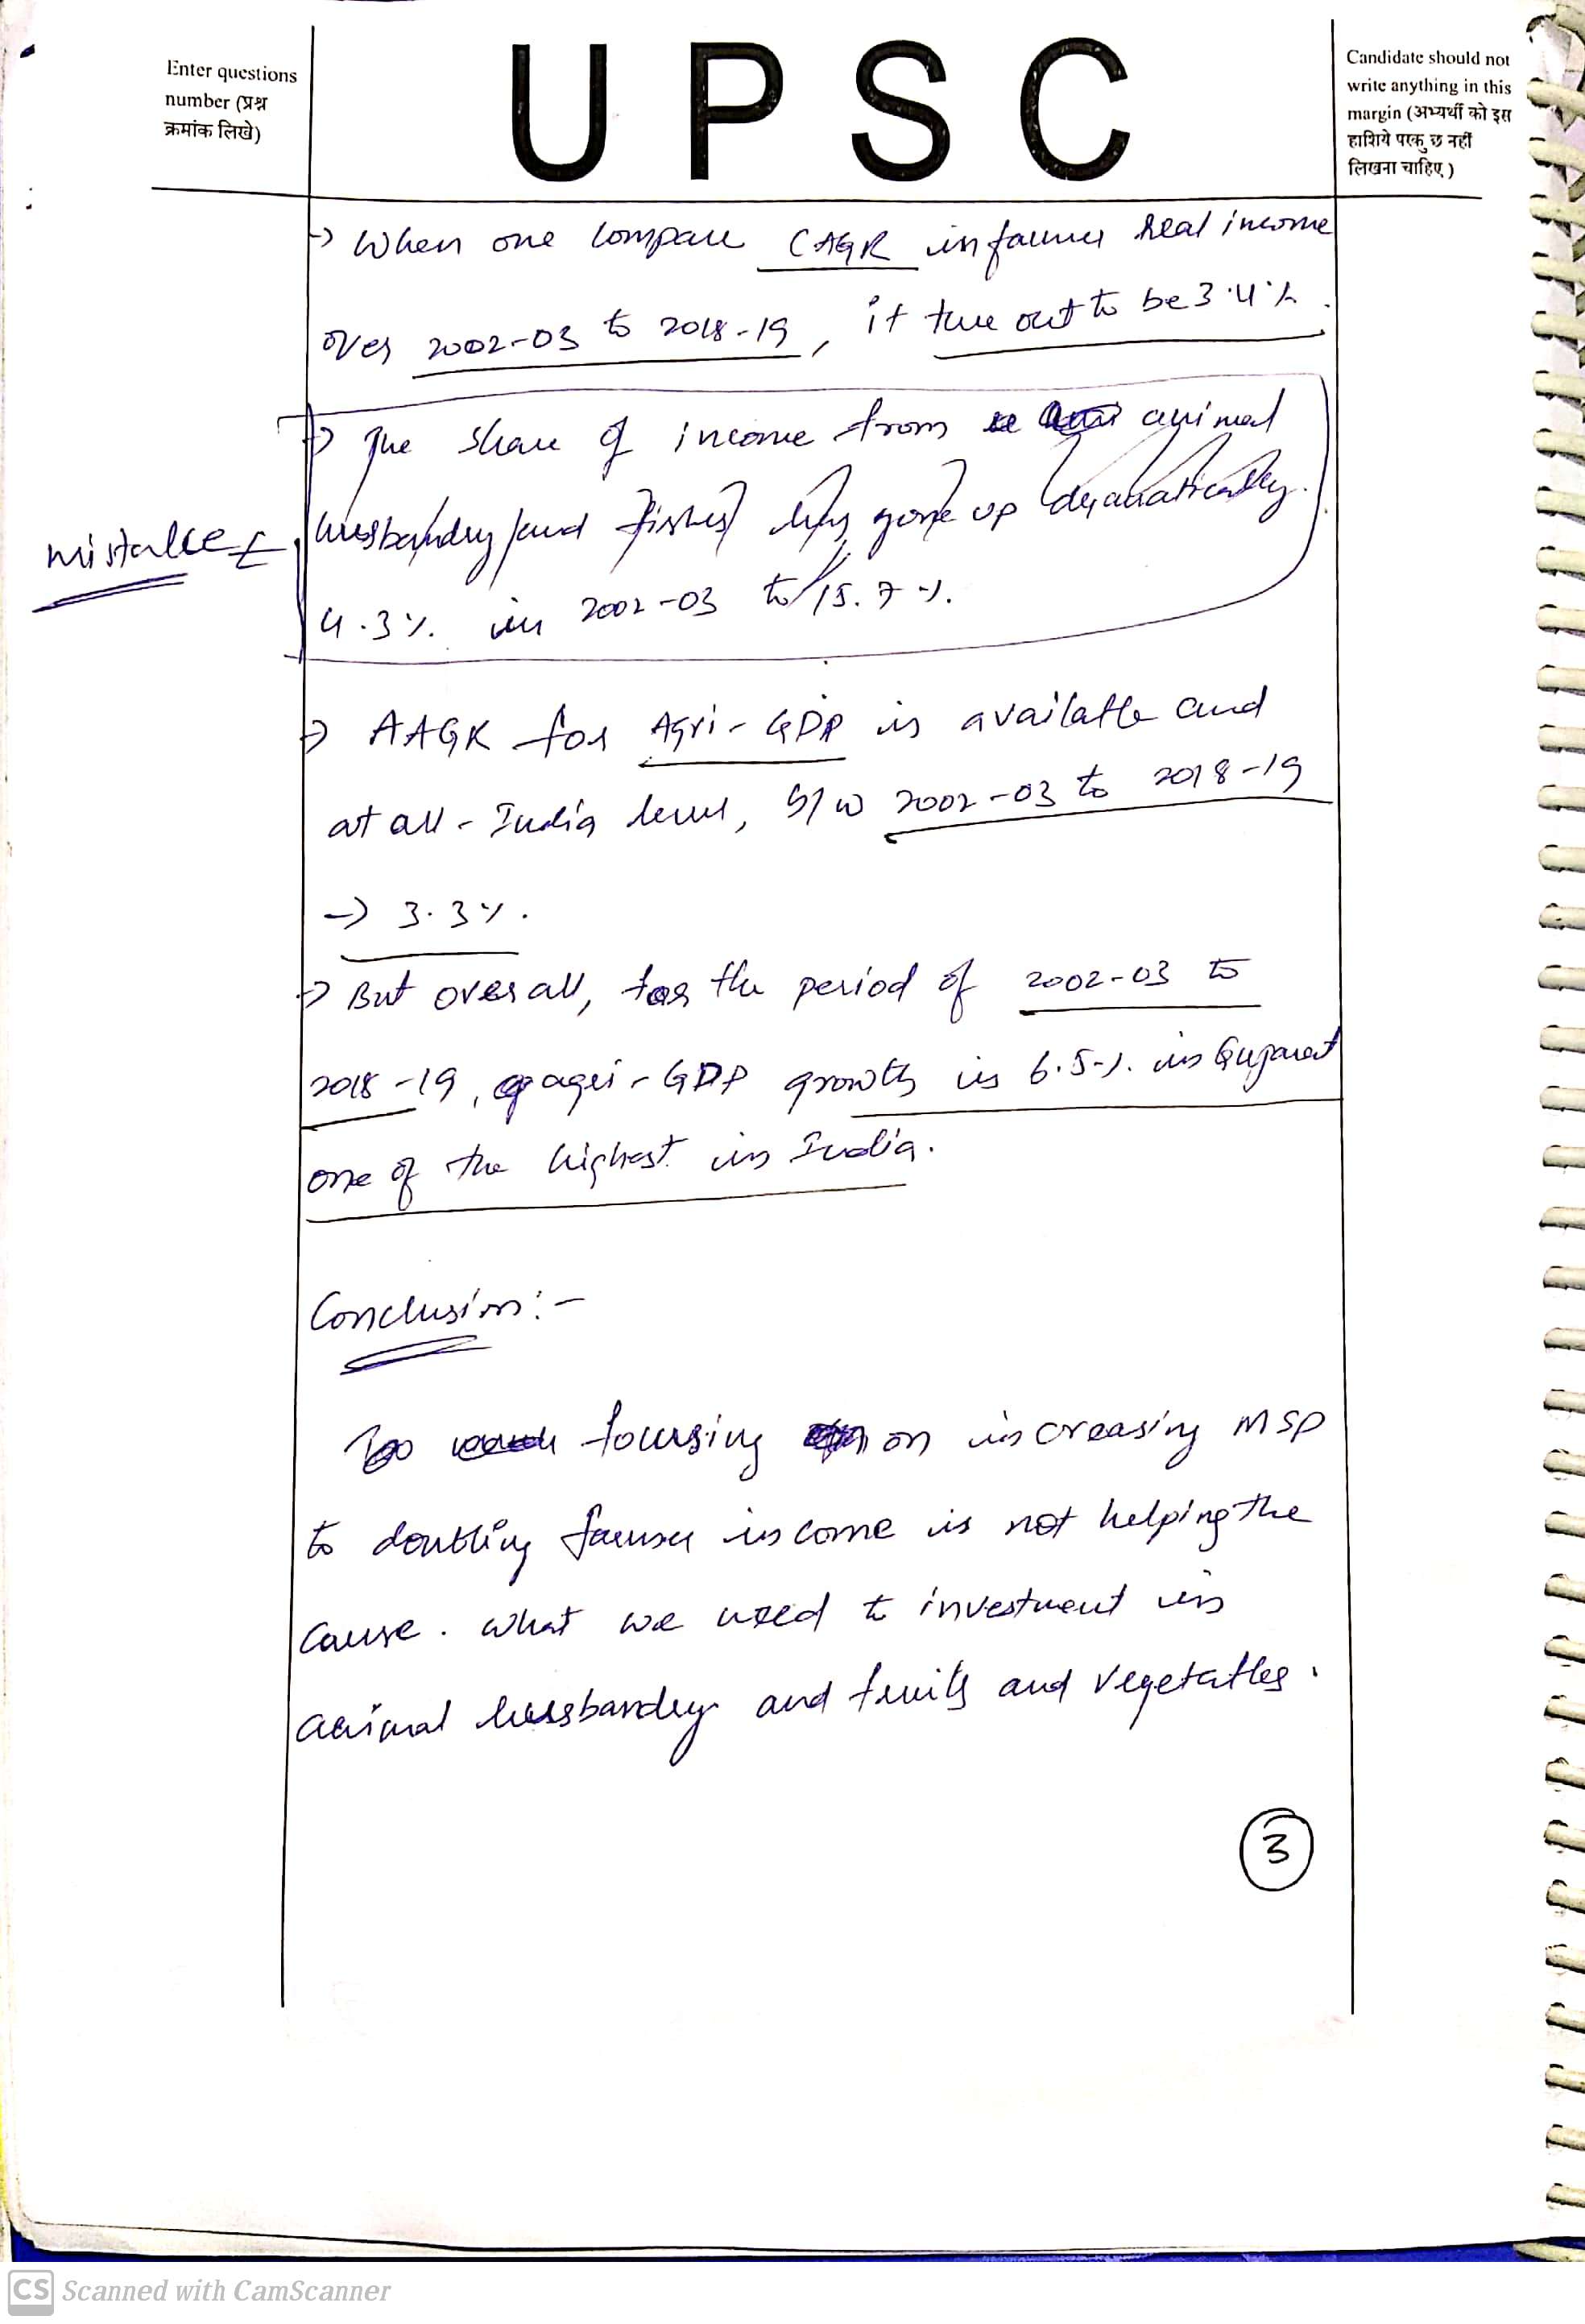 Enter questions
number (प्रश्न
क्रमांक लिखे)
UPSC
Candidate should not
write anything in this
margin (अभ्यर्थी को इस
हाशिये परकुछ नहीं
लिखना चाहिए)
-> When one compare CAGR in farmer real income
over 2002-03 to 2018-19, it ture out to be 3.4%.
-> The share of income from animal
husbandry and fishes has gone up dramatically.
mistake
4.3%. in 2002-03 to 15.7%.
-> AAGR for Agri-GDP is available and
at all-India level, b/w 2002-03 to 2018-19
-> 3.3%.
-> But overall, for the period of 2002-03 to
2018-19, agri-GDP growth is 6.5%. in Gujarat
one of the highest in India.
Conclusion:-
focusing on increasing MSP
to doubling farmer income is not helping the
cause. What we need to investment in
animal husbandry and fruits and vegetables.
3
CS Scanned with CamScanner